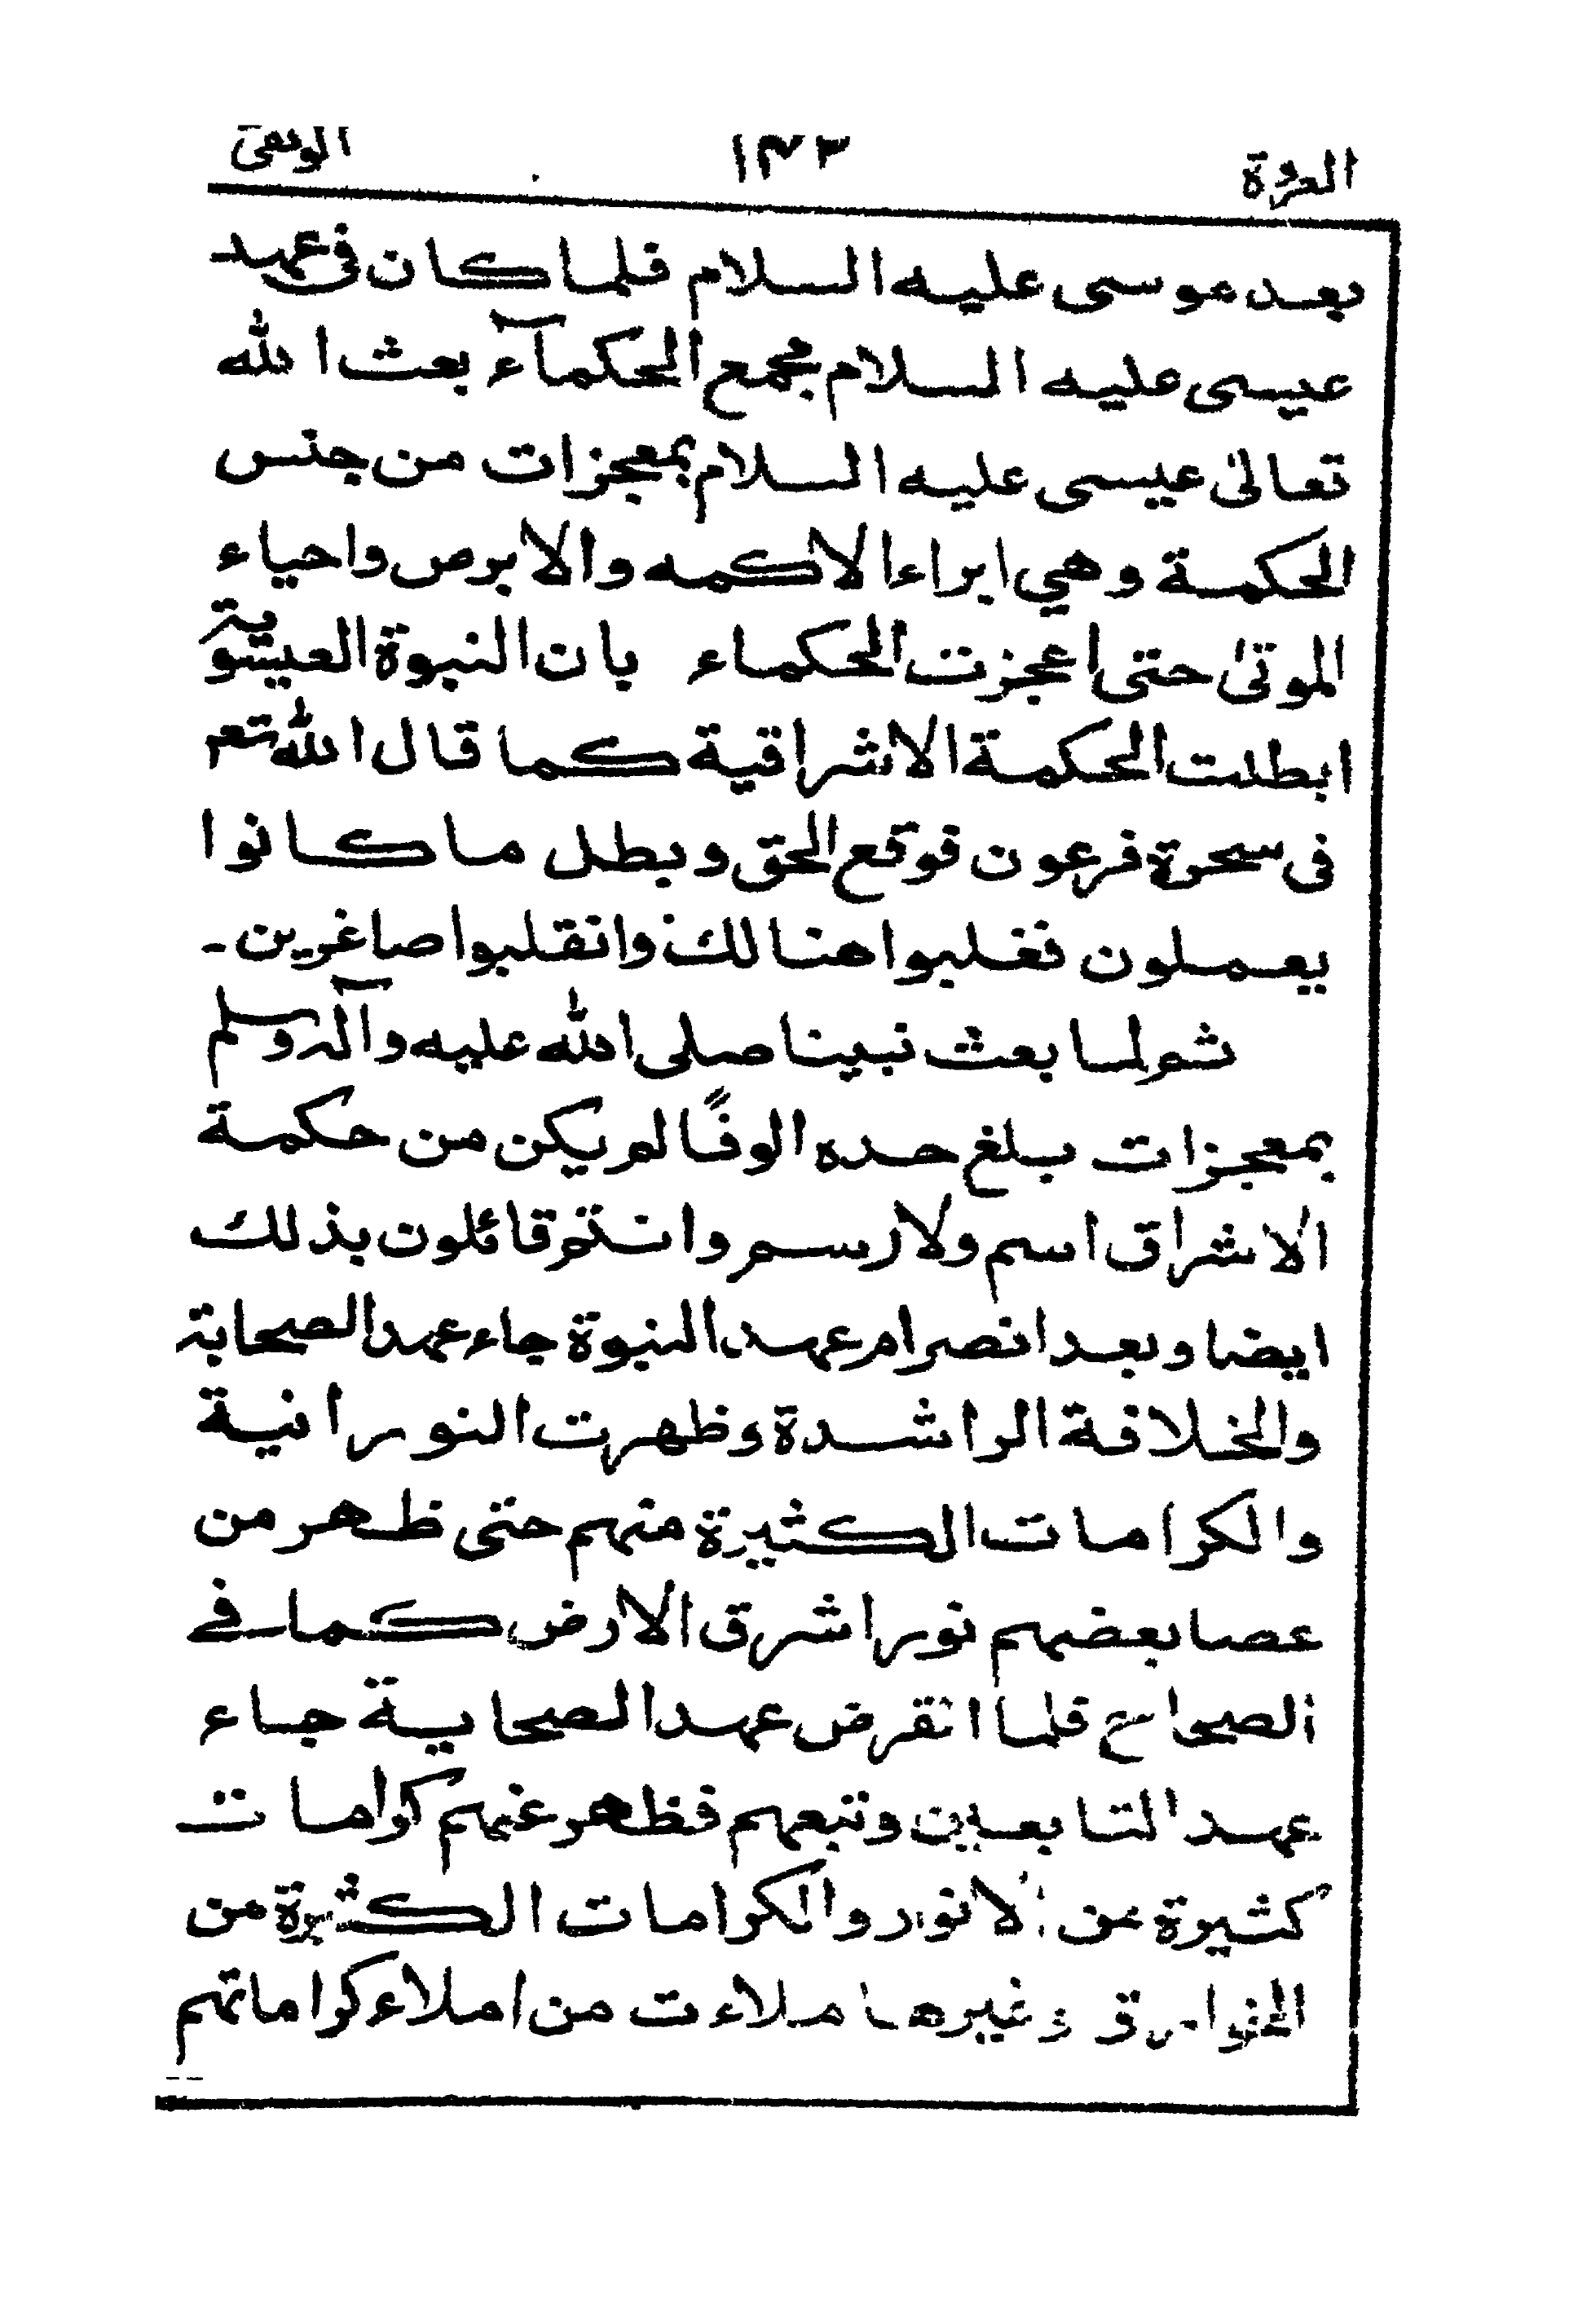 العروة ١٤٣ الوثقى
بعد موسى عليه السلام فلما كان فى عهد
عيسى عليه السلام مجمع الحكمآء بعث الله
تعالىٰ عيسى عليه السلام بمعجزات من جنس
الحكمة وهي ابراءا لاكمه والابرص واحياء
الموتىٰ حتى اعجزت الحكماء بان النبوة العيسوية
ابطلت الحكمة الاشراقية كما قال الله تعم
فى سحرة فرعون فوقع الحق وبطل ما كانوا
يعملون فغلبوا هنالك وانقلبوا صاغرين۔
ثم لما بعث نبينا صلى الله عليه وآله وسلم
بمعجزات بلغ حده الوفًا لم يكن من حكمة
الاشراق اسم ولا رسم وانتم قائلون بذلك
ايضا وبعد انصرام عهد النبوة جاء عهد الصحابة
والخلافة الراشدة وظهرت النورانية
والكرامات الكثيرة منهم حتى ظهر من
عصا بعضهم نور اشرق الارض كما فے
الصحاح فلما انقرض عهد الصحابية جاء
عهد التابعين وتبعهم فظهر عنهم كرامات
كثيرة من الانوار والكرامات الكثيرة من
الخوارق وغيرها ملاءت من املاء كراماتهم